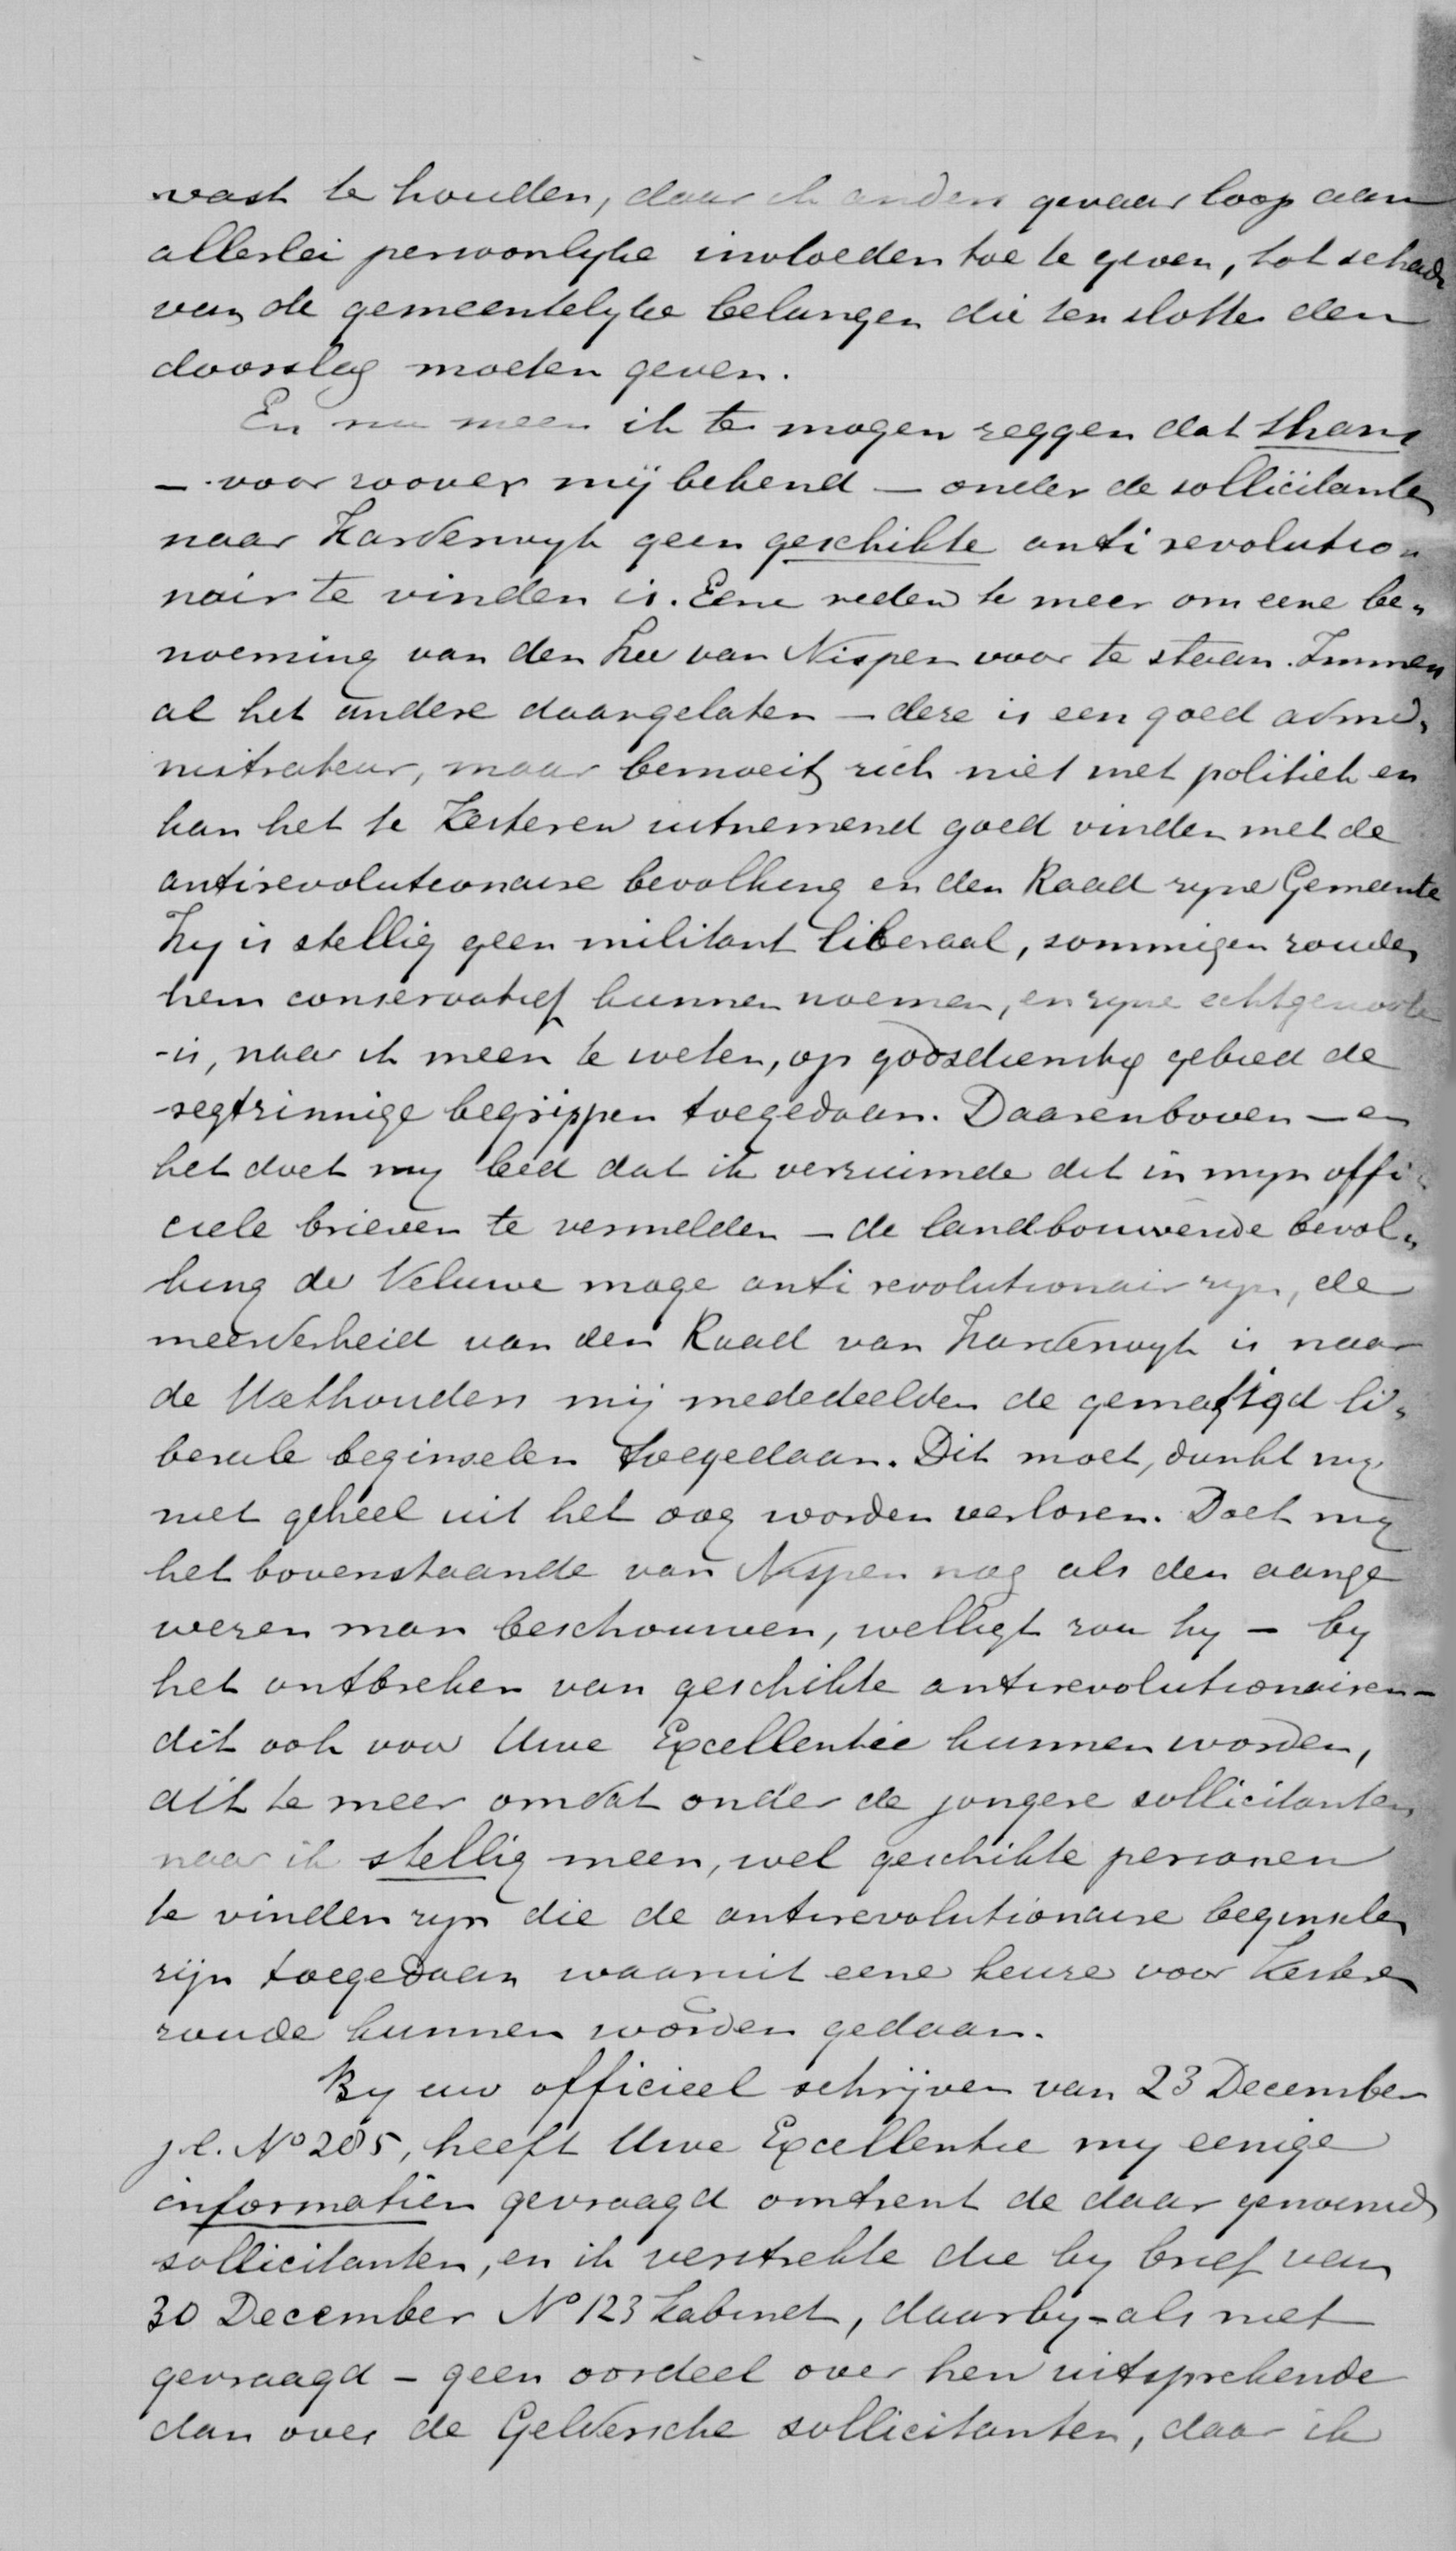 vast te houden, daar ik anders gevaar loop aan
allerlei persoonlyke invloeden toe te geven, tot schade
van de gemeentelyke belangen die ten slotte den
doorslag moeten geven.
En nu meen ik te mogen zeggen dat thans
– voor zoover mij bekend – onder de sollicitanten
naar Harderwyk geen geschikte anti revolutio„
nair te vinden is. Eene reden te meer om eene be„
noeming van den heer van Nispen voor te staan. Immers
al het andere daargelaten – deze is een goed admi„
nistrateur, maar bemoeit zich niet met politiek en
kan het te Kesteren uitnemend goed vinden met de
antirevolutionaire bevolking en den Raad zyne Gemeente
Hy is stellig geen militant liberaal, sommigen zouden
hem conservatief kunnen noemen, en zyne echtgenoote
is, naar ik meen te weten, op godsdienstig gebied de
regtzinnige begrippen toegedaan. Daarenboven – en
het doet my leed dat ik verzuimde dit in myn offi„
ciele brieven te vermelden – de landbouwende bevol„
king der Veluwe moge anti revolutionair zyn, de
meerderheid van den Raad van Harderwyk is naar
de Wethouders mij mededeelden de gematigd li„
berale beginselen toegedaan. Dit moet, dunkt my
niet geheel uit het oog worden verloren. Doet my
het bovenstaande van Nispen nog als den aange
wezen man beschouwen, welligt zou hy – by
het ontbreken van geschikte antirevolutionairen –
dit ook voor Uwe Excellentie kunnen worden,
dit te meer omdat onder de jongere sollicitanten
naar ik stellig meen, wel geschikte personen
te vinden zyn die de antirevolutionaire beginselen
zijn toegedaan waaruit eene keuze voor Kesteren
zoude kunnen worden gedaan.
By uw officieel schrijven van 23 December
j.l. No 285, heeft Uwe Excellentie my eenige
informatien gevraagd omtrent de daar genoemde
sollicitanten, en ik verstrekte die by brief van
30 December No 123 Kabinet, daarby – als niet
gevraagd – geen oordeel over hen uitsprekende
dan over de Geldersche sollicitanten, daar ik